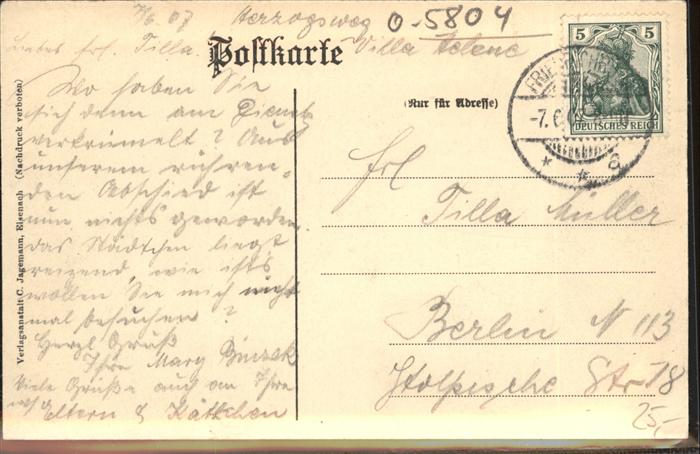 7/6 07 Herzogsweg 0-5804
Liebes Frl. Tilla. Postkarte Villa Helene
Wo haben Sie
sich denn am Dienst
verkrümelt? Aus
unserem rühren-
den Abschied ist
nun nichts geworden.
das Städtchen liegt
reizend, wie ists
wollen Sie mich nicht
mal besuchen?
Herzl. Gruß
Ihre Mary
Viele Grüße auch an Ihre
Eltern & Käthchen
Verlagsanstalt C. Jagemann, Eisenach (Nachdruck verboten)
(Nur für Adresse)
5 5
DEUTSCHES REICH
-7.6.
* * a
Frl
Tilla Müller
Berlin N 113
Stolpische Str 18
25,-